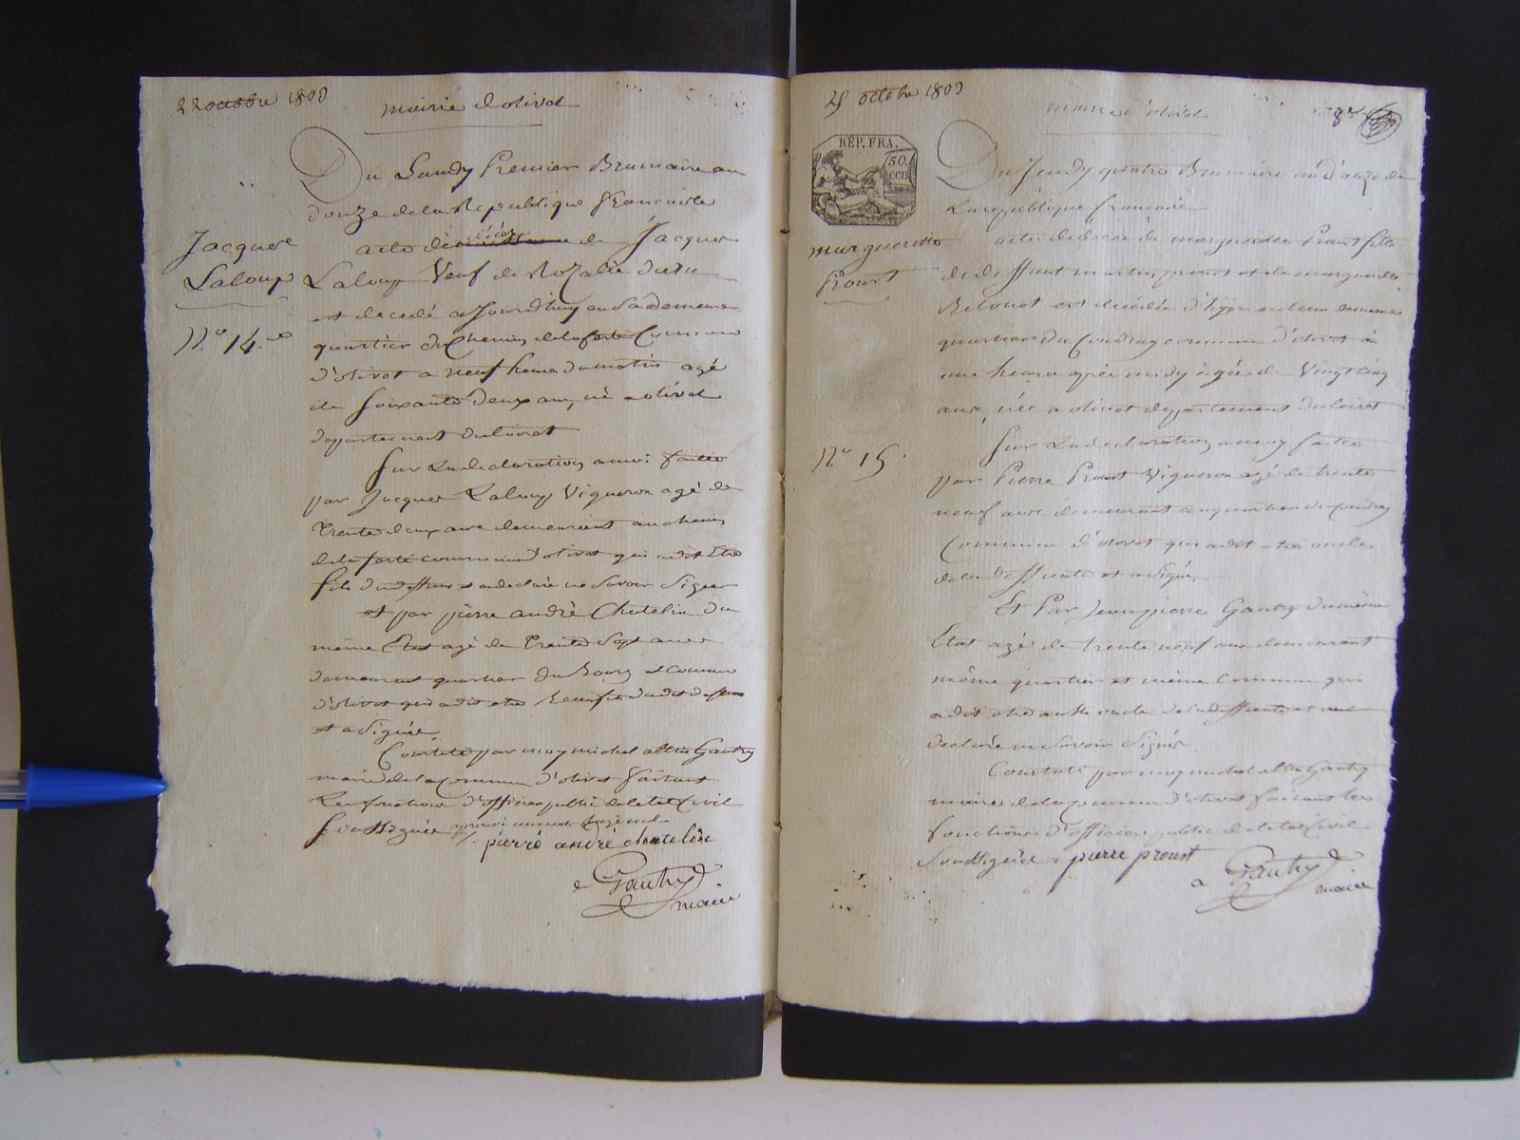 22 octobre 1803
mairie d'olivet
Du Lundy Premier Brumaire an
douze de la République françoise
Jacque
Laloup
N.º 14.
acte de décès de Jacques
Laloup Veuf de Rozalie
est décédé aujourd'huy en sa demeure
quartier du chemin de la ferté Commune
d'olivet a neuf heure du matin agé
de soixante deux ans, né a olivet
departement du loiret
Sur la declaration a moi faitte
par Jacques Laloup Vigneron agé de
trente deux ans demeurant au chemin
de la ferté commune d'olivet qui a dit Etre
fils du deffunt et a declaré ne Savoir Signer
et par pierre andré Chatelin du
même Etat agé de trente Sept ans
demeurant quartier du Bourg et Commune
d'olivet qui a dit etre dudit deffunt
et a Signé
Constaté par moy michel Gautry
maire de la Commune d'olivet faisant
Les fonctions d'officier public de letat Civil
Soussigné
pierré andré chatelin
Gautry
maire
25 octobre 1803
mairie d'olivet
8
RÉP. FRA.
50.
CEN
Du Jeudy quatre Brumaire an d'ouze de
La république francoise
margueritte
Prout
N.º 15.
acte de décès de margueritte Prout fille
de deffunt prout et de marguerite
est décédée d'hyer en leur demeure
quartier du Coudray commune d'olivet a
une heure après midy agée de Vingt cinq
ans, née a olivet departement du loiret
Sur La declaration a moy faitte
par Pierre Prout Vigneron agé de trente
neuf ans demeurant au quartier du Coudray
Commune d'olivet qui a dit etre oncle
de la Deffunte et a Signé
Et Par Jean pierre Gautry du même
Etat agé de trente neuf ans demeurant
même quartier et même Commune qui
a dit etre oncle de la deffunte et a
declaré ne Savoir Signer
Constaté par moy michel Gautry
maire de la Commune d'olivet faisant les
fonctions d'officier public de letat Civil
Soussigné
pierre prout
Gautry
maire